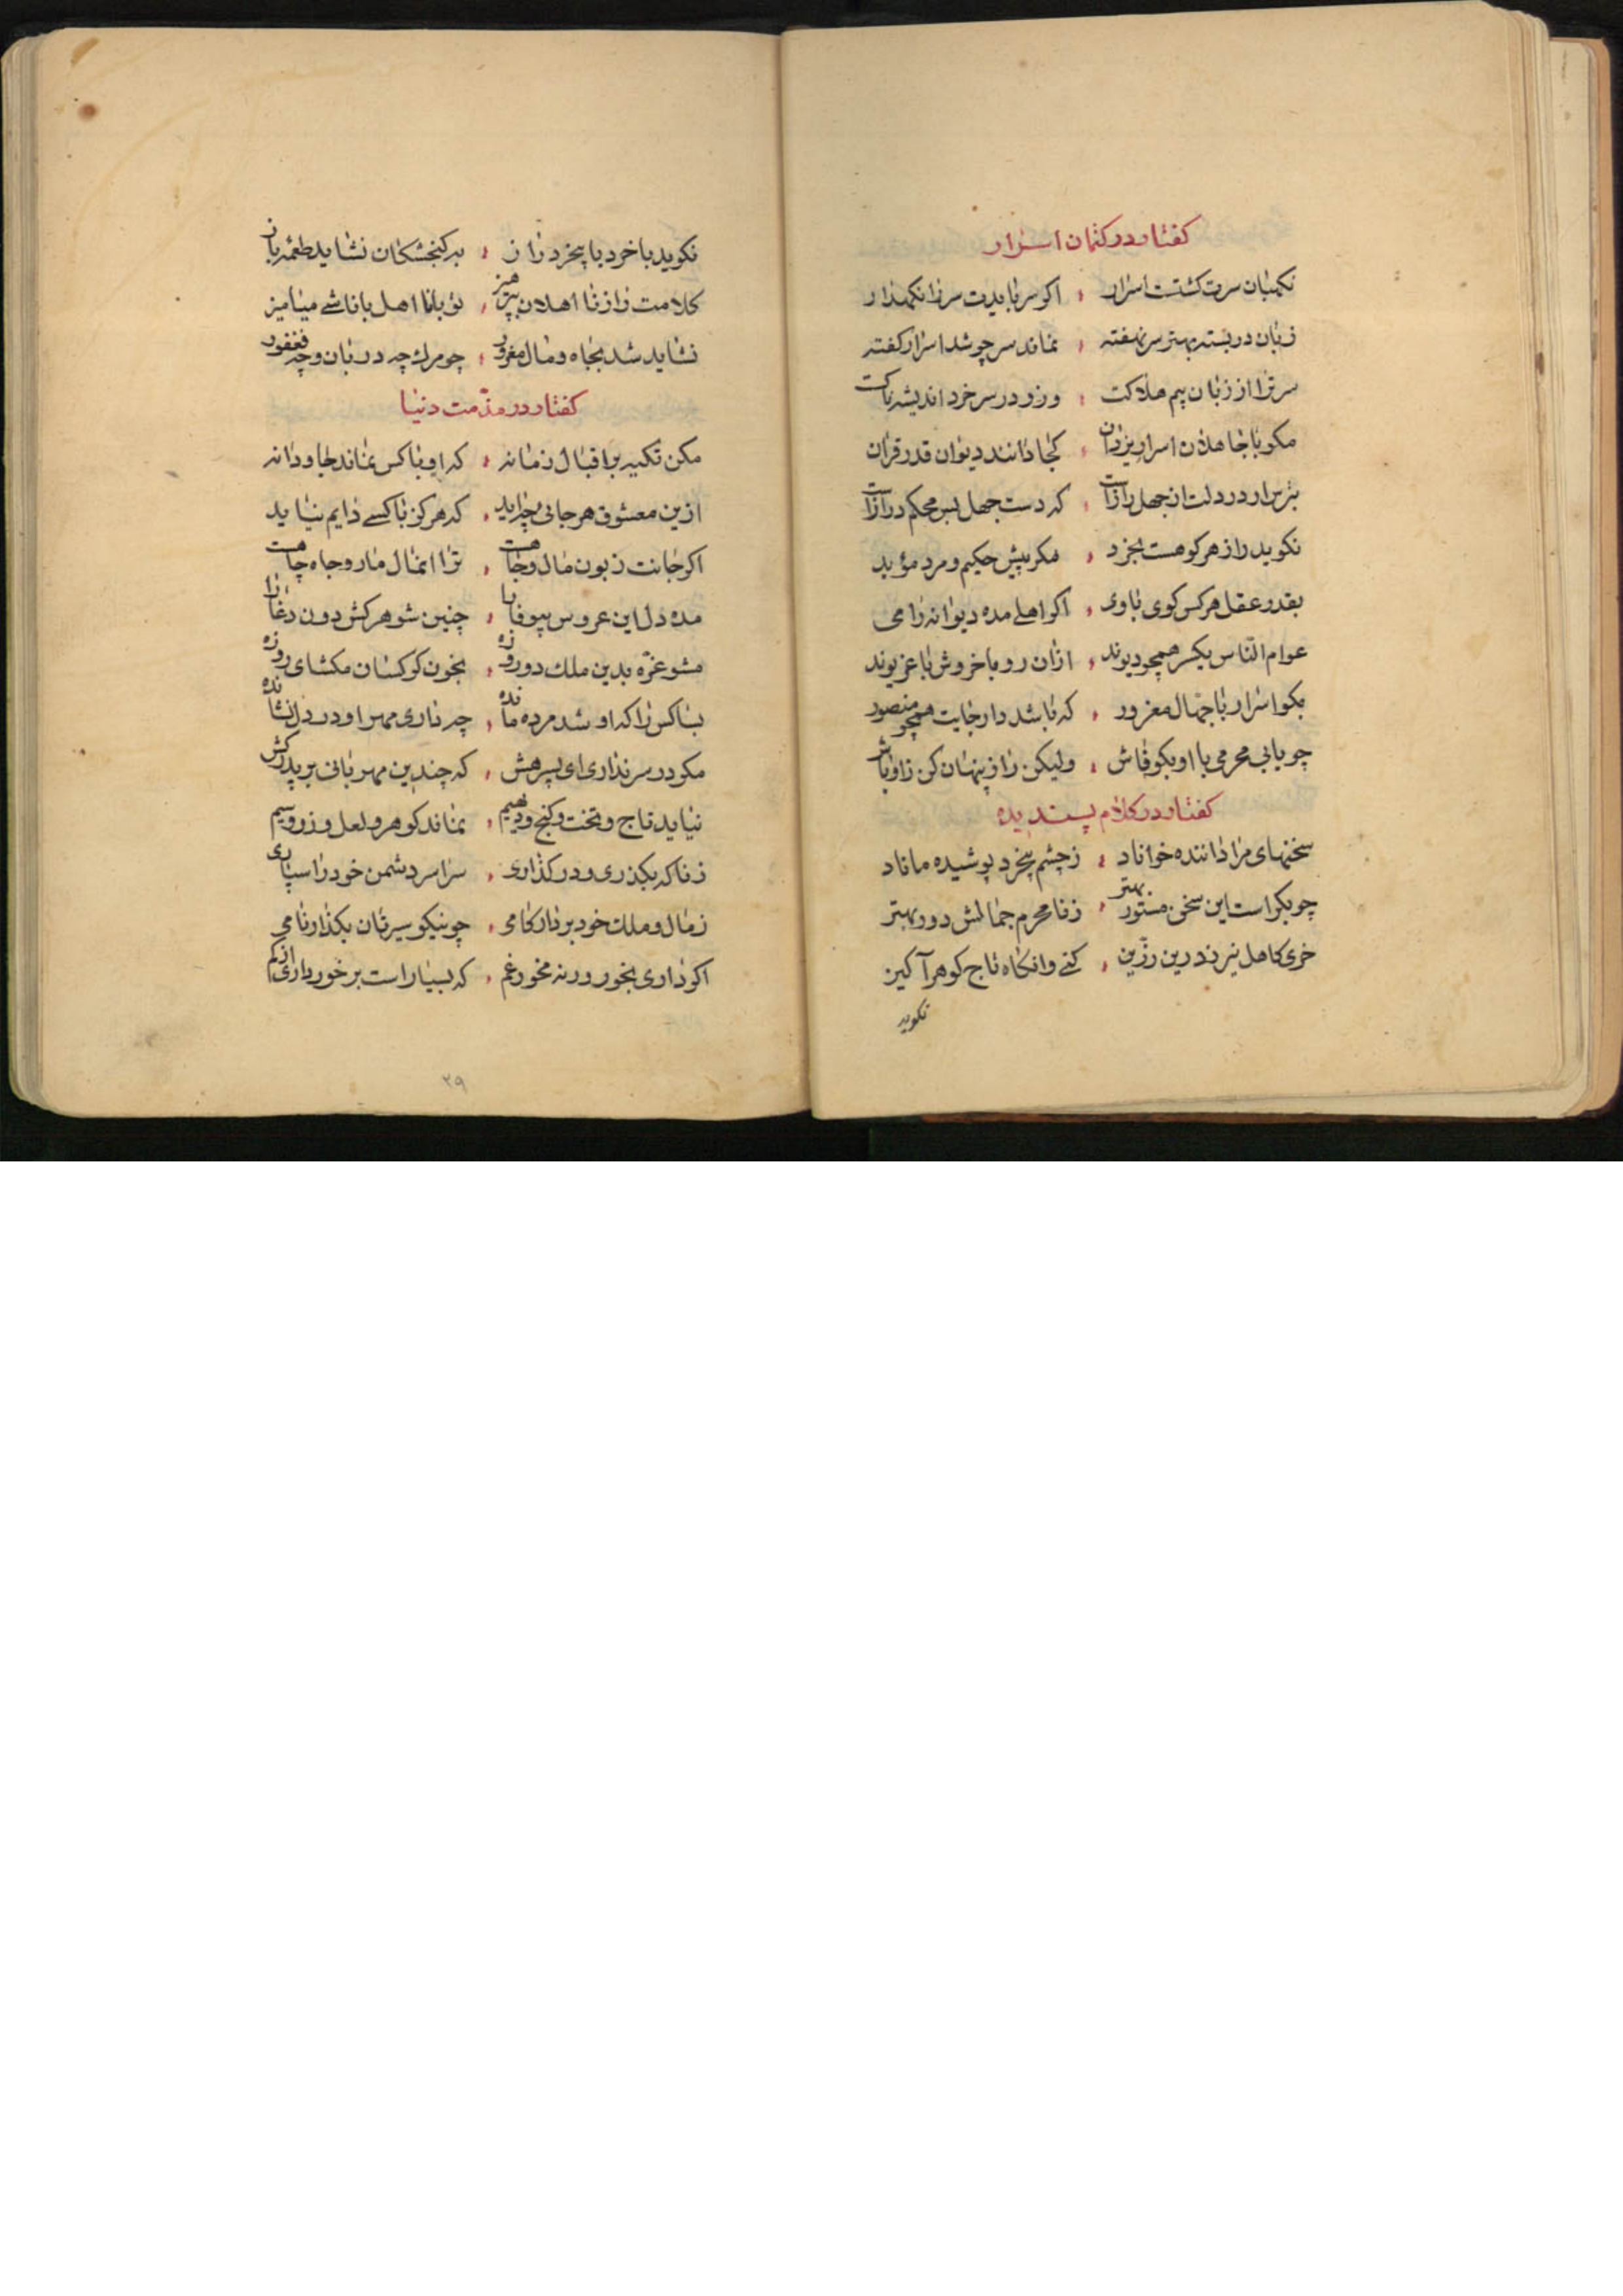 کفتار در کتمان اسرار
نکهبان سرت کشتست اسرار ، اکر سر بایدت سر را نکهدار
زبان در بسته بهتر سر نهفته ، نماند سر چو شد اسرار کفته
سر ترا از زبان بیم هلاکت ، وزو در سر خرد اندیشه ناکت
مکو با جاهلان اسرار یزدان ، کجا دانند دیوان قدر قران
در دلت از جهل رازت ، که دست جهل بس محکم درازات
نکوید راز هر کو هست بخرد ، مکر پیش حکیم و مرد مؤید
بقدر عقل هر کس کوی باوی ، اکر اهلے مده دیوانه را می
عوام الناس یکسر همچو دیوند ، ازان رو با خروش با غریوند
مکو اسرار با جهال مغرور ، که باشد دار جایت همچو منصور
چو یابی محرمی با او بکو فاش ، ولیکن راز پنهان کن ز اوباش
کفتار در کلام پسندیده
سخنهای مرا داننده خواناد ، ز چشم بیخرد پوشیده ماناد
چو بکر است این سخن مستور بهتر ، ز نا محرم جمالش دور بهتر
خری کاهل نیرزد رین رزین ، کنے وانکاه تاج کوهر آکین
نکوید
نکوید با خرد با بیخرد راز ، بر کنجشکان نشاید طعمه باز
کلامت را ز نا اهلان بپرهیز ، تو با نا اهل با ناشے میامیز
نشاید شد بجاه و مال مغرور ، چو مرک چه دربان و چه فغفور
کفتار در مذّمت دنیا
مکن تکیه بر اقبال زمانه ، که او با کس نماند جاودانه
ازین معشوق هر جائی چراید ، که هر کز با کسے دایم نیاید
اکر جانت زبون مال و جاهست ، ترا ان مال مار و جاه چاهست
مده دل این عروس بیوفا را ، چنین شوهر کش دون دغا را
مشو غرّه بدین ملک دو روزه ، بخون کر کسان مکشای روزه
بسا کس را که او شد مرده مانده ، چه داری مهر او در دل نشانده
مکو در سر نداری ای پسر هش ، که چندین مهربانی بر پدر کش
نیاید تاج و تخت و کنج و دیهیم ، نماند کوهر و لعل و زر و سیم
ز ناکه بکذری و در کذاری ، سراسر دشمن خود را سپاری
ز مال و ملک خود بردار کامی ، چو نیکو سیرتان بکذار نامی
اکر داری بخور ور نه مخور غم ، که بسیار است برخورداری از کم
۲۹